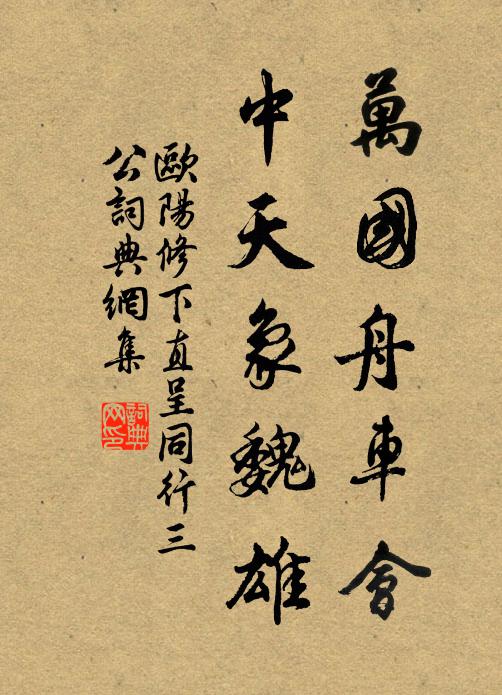 萬國舟車會
中天象魏雄
歐陽修下直呈同行三
公詞典網集
詞典網印